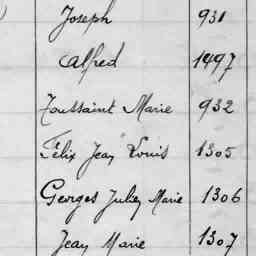 Joseph 931
Alfred 1497
Toussaint Marie 932
Félix Jean Louis 1305
Georges Julien Marie 1306
Jean Marie 1307